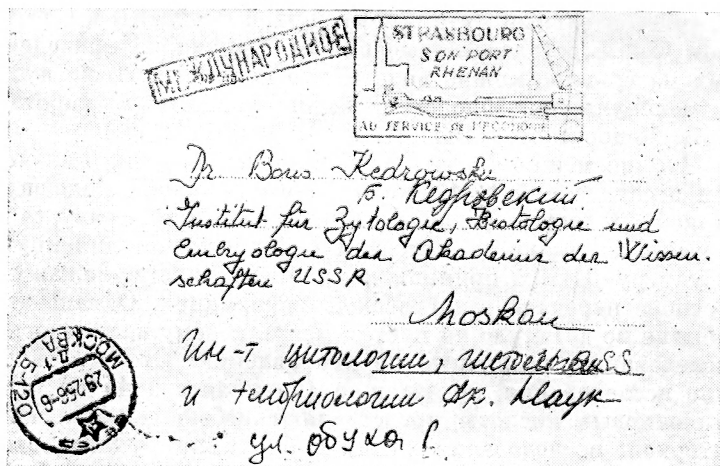 МЕЖДУНАРОДНОЕ
STRASBOURG
SON PORT
RHENAN
AU SERVICE DE L'ECONOMIE
Dr Boris Kedrowski
Б. Кедровский
Institut für Zytologie, Histologie und
Embryologie der Akademie der Wissen-
schaften USSR
Moskau
Ин-т цитологии, гистологии
и эмбриологии Ак. Наук
ул. обуха
МОСКВА Б-120
Д-1
29256-6